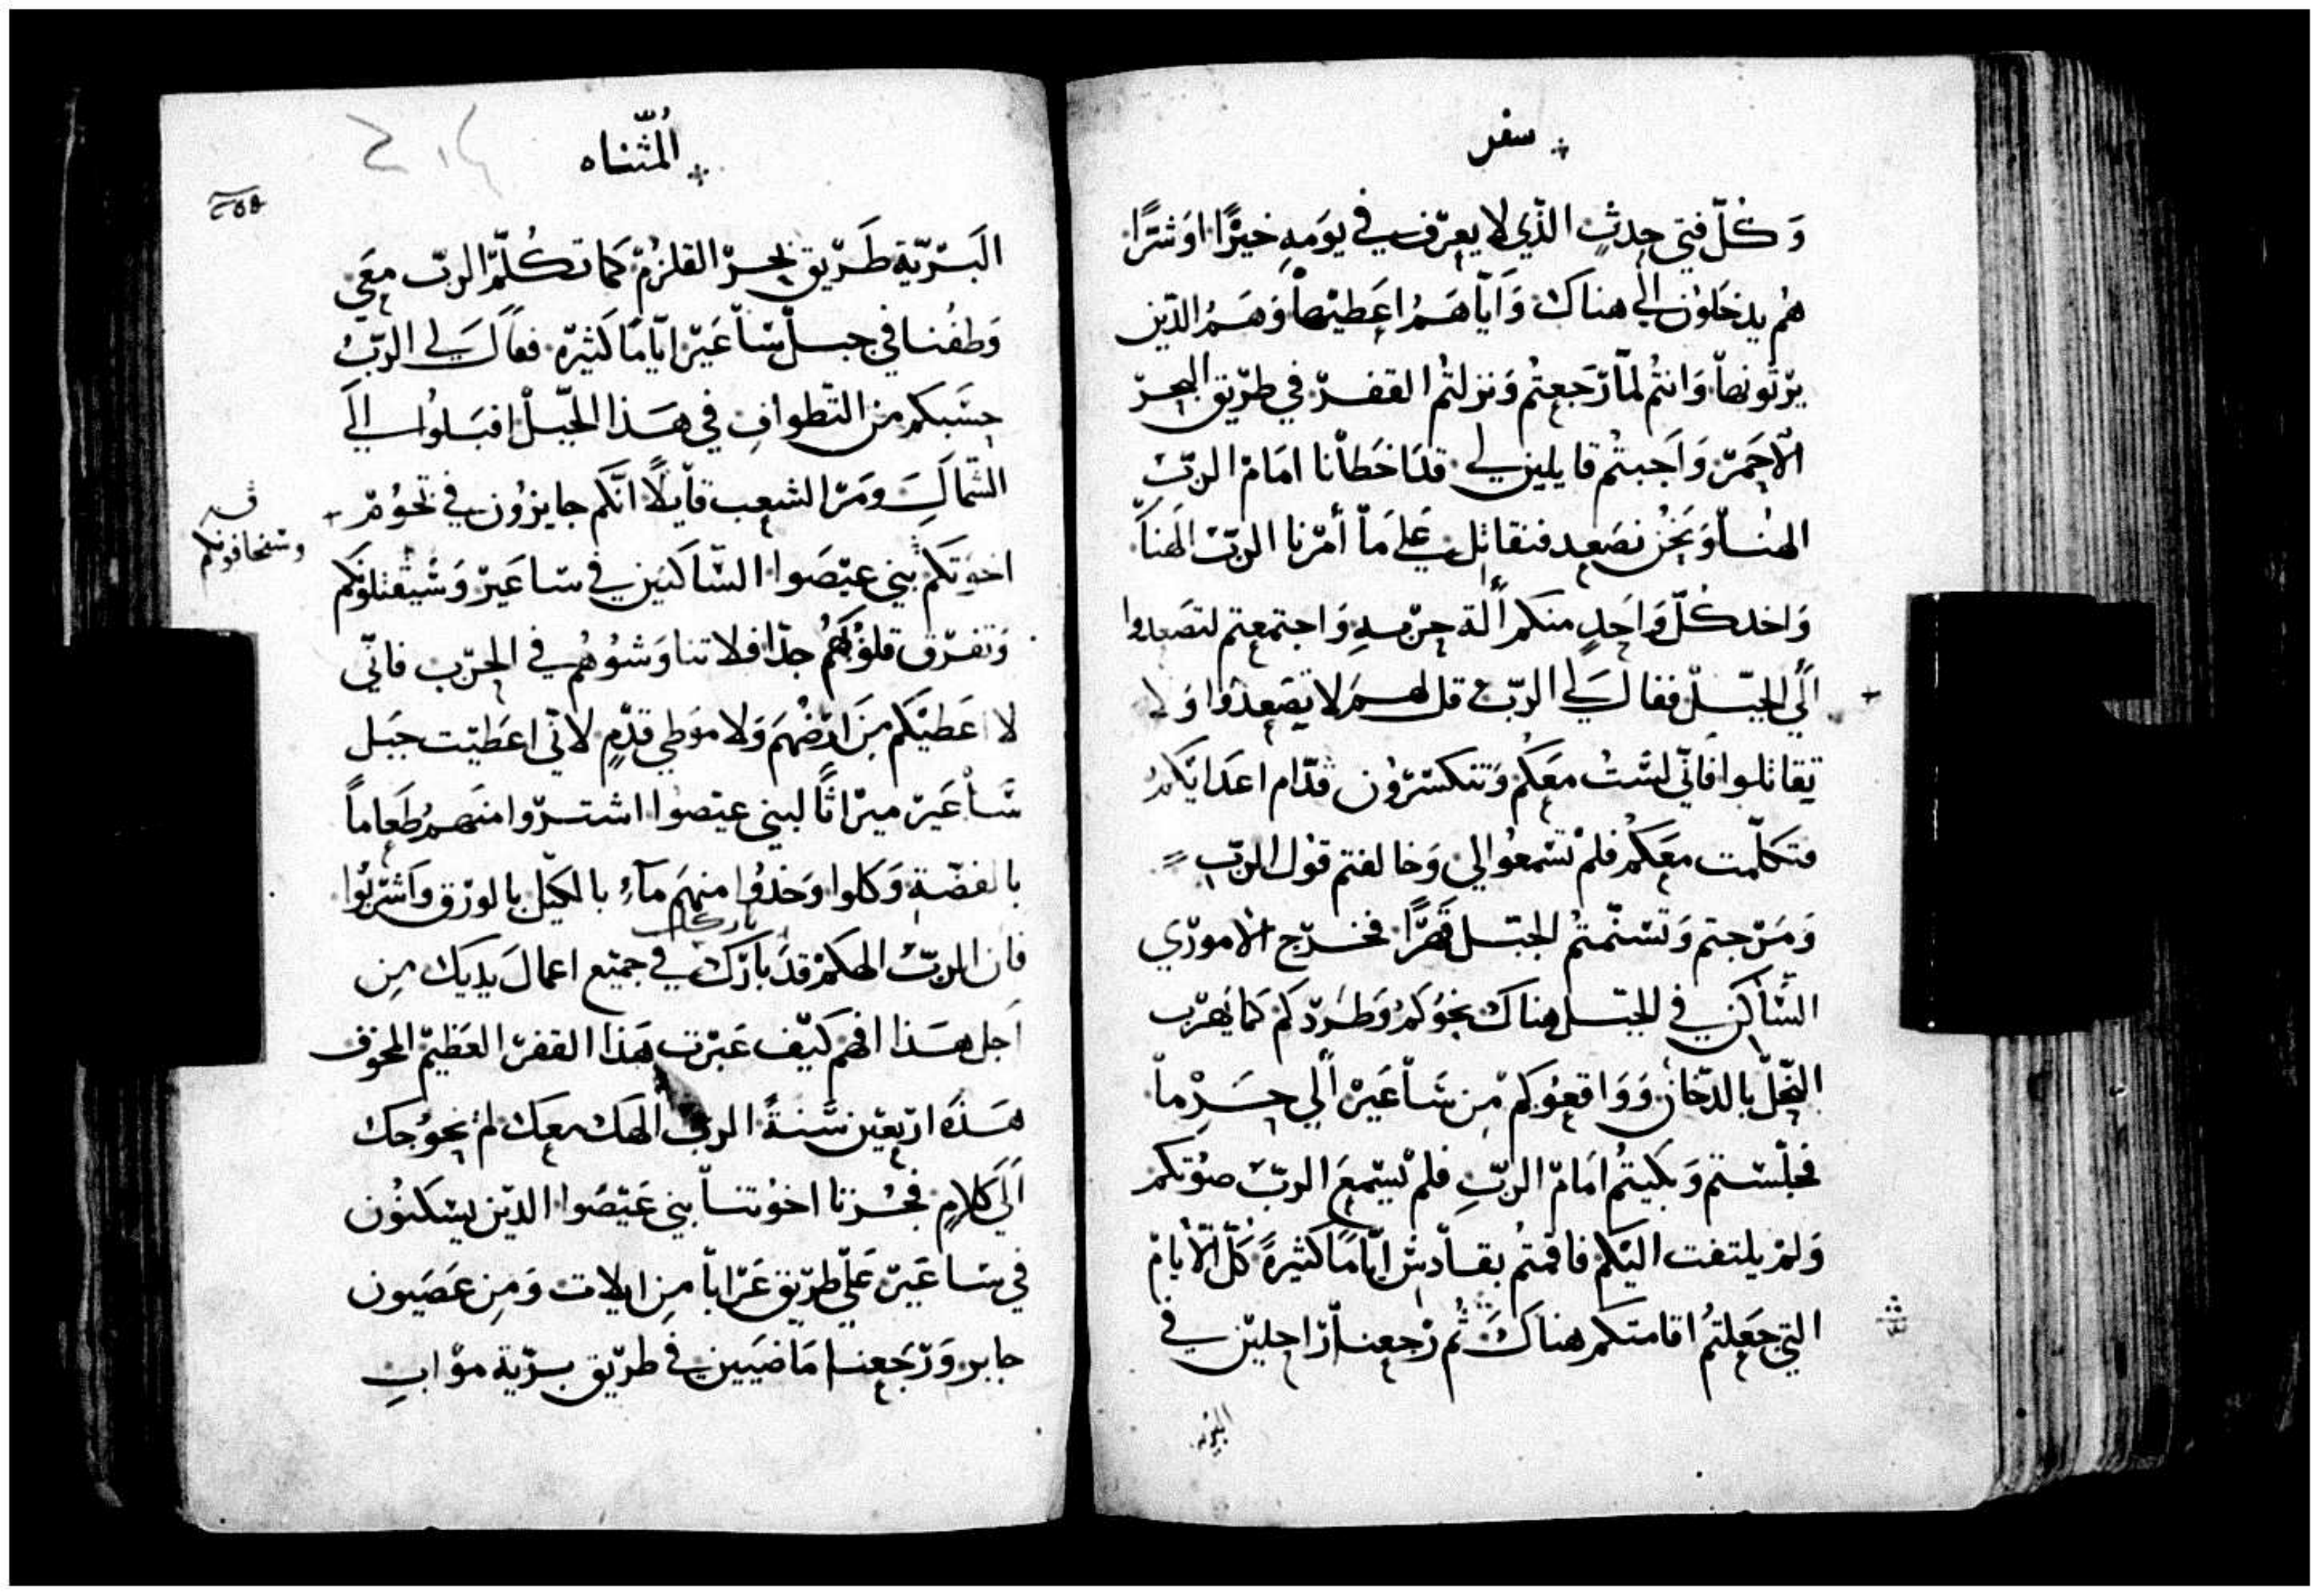 سفر
وَكُلّ فتي حدثٍ الذّي لا يعرّف في يوَمهِ خيرًا اوَشرًا
هُم يدخَلوُن الي هناك وَايّاهَمُ اعَطيهاْ وَهَمُ الذّين
يرْثونهاْ وَانتُم لماّ رّجَعتُم وَنزلتُم القفرّ في طرّيق البحرّ
الاحَمرّ وَاَجبتُم قايلين لي قدَاخطاْنا امَامْ الربّ
الهُنا وَنَحُن نصَعد فنقاتل عَلي مَا أمرْنا الربّ الهَنا
وَاخد كُلّ وَاحَدٍ منكم أَلة حرْبهِ وَاجتمعتم لتصَعدوا
اَلي الجبّل فقال لَي الربّ قل لهم لا تصَعدُوا وَلا
تقاتلوا فانّي لسَّتُ معَكُم وَتنكسّرُون قدّام اعدَايَكمُ
فتكلّمت معَكُم فلمْ تسّمعُوا لي وَخالفتم قوْل الربّ
وَمَرّجتم وَتسّنّمتُم الجبّل قَهرًا فخرّج الامورّي
السّاكن في الجبّل هناك نحوُكمُ وَطَردّكم كمَا يَهرّب
النّحلّ بالدّخان وَوَاقعوُكمْ من سَاْعَيرْ اَلي حَرْماْ
فجلّسّتم وَبكَيتُم امَامْ الربّ فلم يسّمعَ الربّ صوُتكم
وَلمْ يلتفت اليَكم فاقمتُم بقاْدسّ ايّامًا كثيرةً كُلّ الاَيامْ
التي جَعلتُم اقامتكم هناكَ ثُم رْجعنا رّاحليْن في
البريه
المُثّناه
٢٥٥
البَرّيّة طَرّيق بحرّ القلزُم كمَا تكُلّم الربّ معَي
وَطفُنا في جبل سَّاْعَيرّ ايّامًا كثيرّة فقاَل لَي الربُّ
حسّبكم من التّطوافِ في هَذا الجَبّلْ اقبَلوُا الَي
الشّمالَ ومَرّ الشعب قاْيلاً انّكم جايزوُن في تخوُم
اخوَتكم بني عيصَوا السّاكنين في سّاعَيرْ وَسّيقتلوُنكم
وسّيخافونكم
وَتفرّق قلوُبَهُم جدًّا فلا تناوَشوُهُم في الحرّب فانّي
لا اعَطيْكم من ارّضُهَم وَلا مَوطي قدّمٍ لانّي اعَطيّت جبَل
سَّاْعَيرّ ميرْاثًا لبني عيصوا اشترّوا منهمُ طَعاماً
بالفضّة وَكلوا وَخذوُا منهَم مآءُ بالكيّل بالورْق وَاشرّبوُا
باركك
فان الربّ الهكمُ قدَ بارَك في جميَع اعمالَ يديَك من
اَجل هَذا افهم كيّف عبَرّت هَذا القفرّ العَظيم المخوف
هَذهَ اربّعيْن سَّنةً الربّ الَهك معَك لمْ يحوُجك
اَلَي كلامٍ فجُزنا اخوُتناْ بني عَيّصَوا الدّين يسّكنُون
في سّاعَيرّ علّي طرّيق عَرّاباْ من ايلات وَمِن عَصَيون
جابر وَرّجَعنا مَاضيَين في طرّيق برّية موْابِ